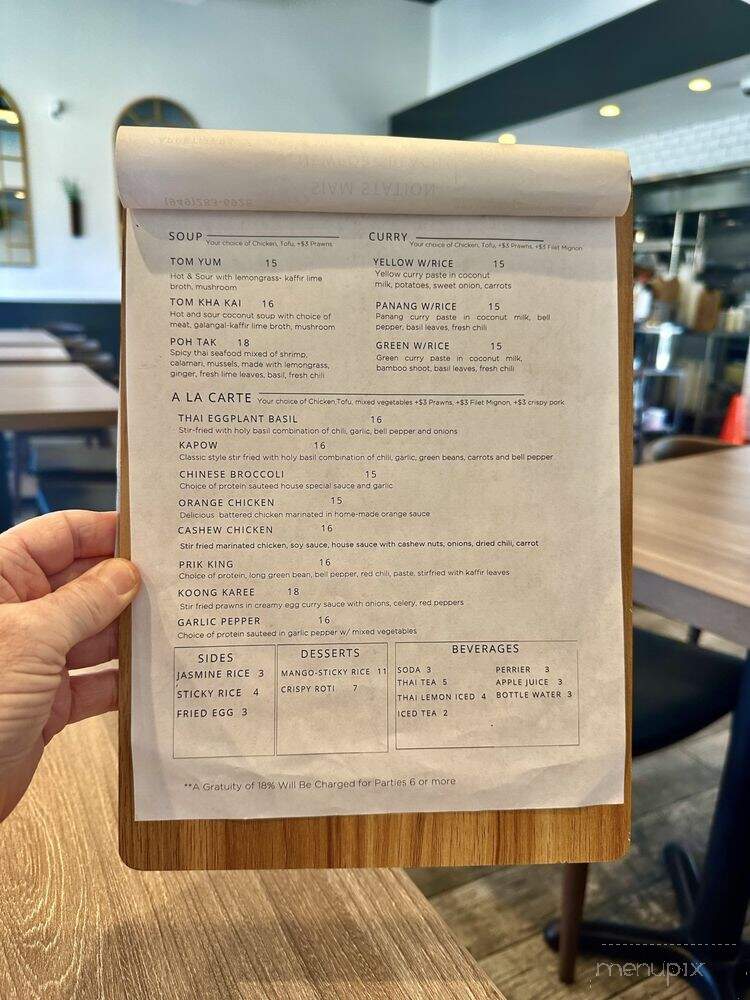 SIAM STATION
(949)283-6928
SOUP
Your choice of Chicken, Tofu, +$3 Prawns
TOM YUM 15
Hot & Sour with lemongrass- kaffir lime
broth, mushroom
TOM KHA KAI 16
Hot and sour coconut soup with choice of
meat, galangal-kaffir lime broth, mushroom
POH TAK 18
Spicy thai seafood mixed of shrimp,
calamari, mussels, made with lemongrass,
ginger, fresh lime leaves, basil, fresh chili
CURRY
Your choice of Chicken, Tofu, +$3 Prawns, +$3 Filet Mignon
YELLOW W/RICE 15
Yellow curry paste in coconut
milk, potatoes, sweet onion, carrots
PANANG W/RICE 15
Panang curry paste in coconut milk, bell
pepper, basil leaves, fresh chili
GREEN W/RICE 15
Green curry paste in coconut milk,
bamboo shoot, basil leaves, fresh chili
A LA CARTE
Your choice of Chicken,Tofu, mixed vegetables +$3 Prawns, +$3 Filet Mignon, +$3 crispy pork
THAI EGGPLANT BASIL 16
Stir-fried with holy basil combination of chili, garlic, bell pepper and onions
KAPOW 16
Classic style stir fried with holy basil combination of chili, garlic, green beans, carrots and bell pepper
CHINESE BROCCOLI 15
Choice of protein sauteed house special sauce and garlic
ORANGE CHICKEN 15
Delicious battered chicken marinated in home-made orange sauce
CASHEW CHICKEN 16
Stir fried marinated chicken, soy sauce, house sauce with cashew nuts, onions, dried chili, carrot
PRIK KING 16
Choice of protein, long green bean, bell pepper, red chili, paste, stirfried with kaffir leaves
KOONG KAREE 18
Stir fried prawns in creamy egg curry sauce with onions, celery, red peppers
GARLIC PEPPER 16
Choice of protein sauteed in garlic pepper w/ mixed vegetables
SIDES
JASMINE RICE 3
STICKY RICE 4
FRIED EGG 3
DESSERTS
MANGO-STICKY RICE 11
CRISPY ROTI 7
BEVERAGES
SODA 3
THAI TEA 5
THAI LEMON ICED 4
ICED TEA 2
PERRIER 3
APPLE JUICE 3
BOTTLE WATER 3
**A Gratuity of 18% Will Be Charged for Parties 6 or more
menupix